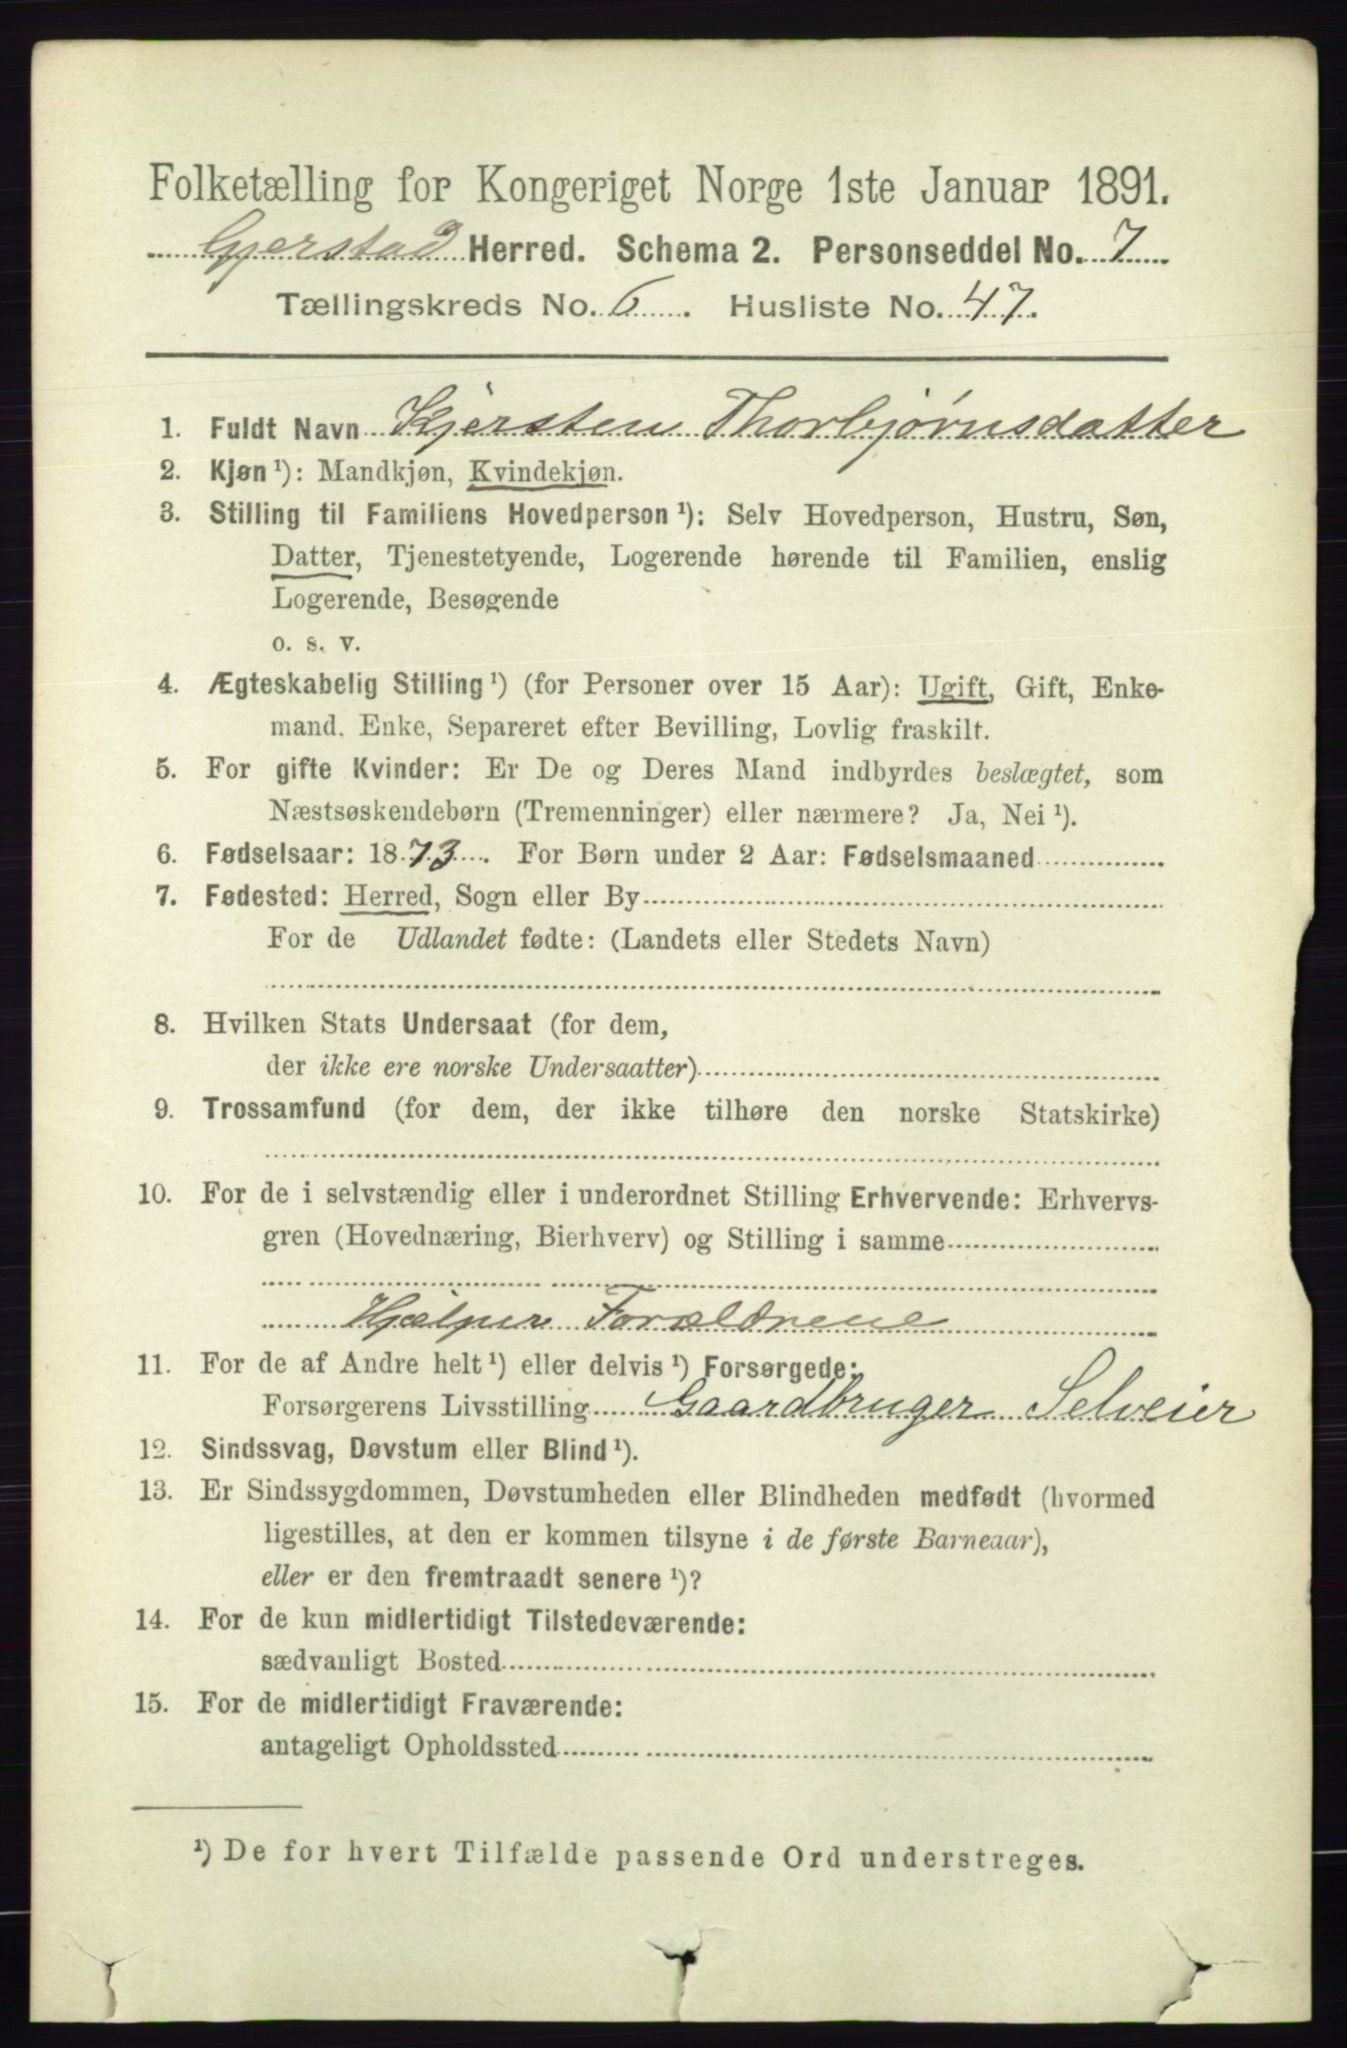 Folketælling for Kongeriget Norge 1ste Januar 1891.
Gjerstad Herred. Schema 2. Personseddel No. 7
Tællingskreds No. 6. Husliste No. 47.
1. Fuldt Navn Kjersten Thorbjørnsdatter
2. Kjøn ¹): Mandkjøn, Kvindekjøn.
3. Stilling til Familiens Hovedperson ¹): Selv Hovedperson, Hustru, Søn,
Datter, Tjenestetyende, Logerende hørende til Familien, enslig
Logerende, Besøgende
o. s. v.
4. Ægteskabelig Stilling ¹) (for Personer over 15 Aar): Ugift, Gift, Enke-
mand. Enke, Separeret efter Bevilling, Lovlig fraskilt.
5. For gifte Kvinder: Er De og Deres Mand indbyrdes beslægtet, som
Næstsøskendebørn (Tremenninger) eller nærmere? Ja, Nei ¹).
6. Fødselsaar: 1873. For Børn under 2 Aar: Fødselsmaaned
7. Fødested: Herred, Sogn eller By
For de Udlandet fødte: (Landets eller Stedets Navn)
8. Hvilken Stats Undersaat (for dem,
der ikke ere norske Undersaatter)
9. Trossamfund (for dem, der ikke tilhøre den norske Statskirke)
10. For de i selvstændig eller i underordnet Stilling Erhvervende: Erhvervs-
gren (Hovednæring, Bierhverv) og Stilling i samme
Hjælper Forældrene
11. For de af Andre helt ¹) eller delvis ¹) Forsørgede:
Forsørgerens Livsstilling Gaardbruger Selveier
12. Sindssvag, Døvstum eller Blind ¹).
13. Er Sindssygdommen, Døvstumheden eller Blindheden medfødt (hvormed
ligestilles, at den er kommen tilsyne i de første Barneaar),
eller er den fremtraadt senere ¹)?
14. For de kun midlertidigt Tilstedeværende:
sædvanligt Bosted
15. For de midlertidigt Fraværende:
antageligt Opholdssted
¹) De for hvert Tilfælde passende Ord understreges.